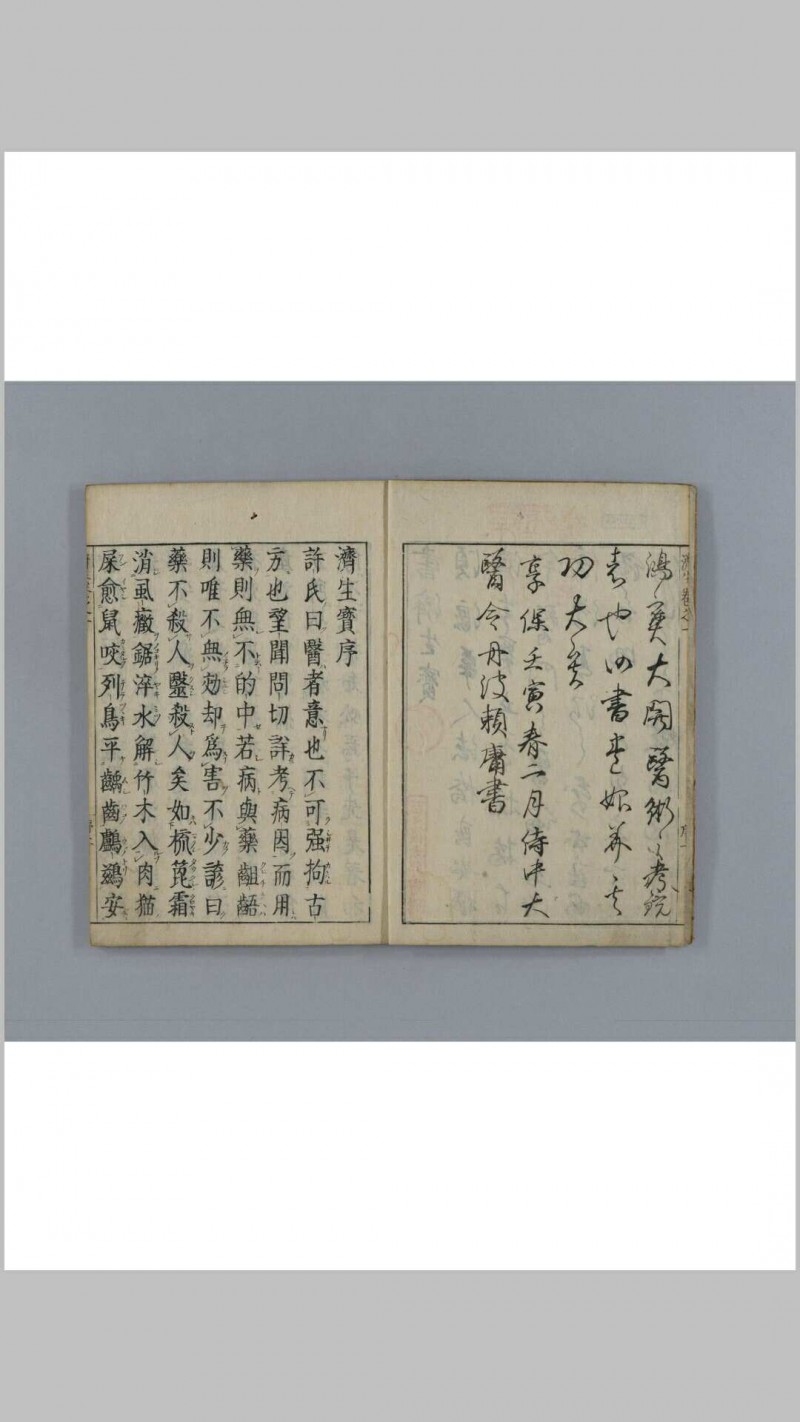 鴻寶大開醫術之考鏡
者也此書
功大矣
享保壬寅春二月侍中大
醫令丹波頼庸書
濟生寳序
許氏曰醫者意也不可强拘古
方也朢聞問切詳考病因而用
藥則無不的中若病與藥齟齬
則唯不無効却爲害不少諺曰
藥不殺人毉殺人矣如梳箆霜
消虱癥鋸淬水解竹木入肉猫
屎愈鼠咬列鳥平齲齒鸕鷀安